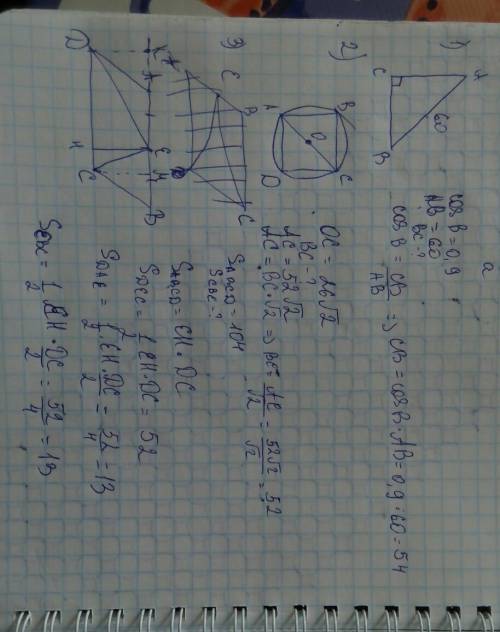 a
1)
A
C
B
60
cos B = 0,9
AB = 60
BC - ?
cos B = CB/AB => CB = cosB · AB = 0,9 · 60 = 54
2)
A
B
O
D
C
OC = 26√2
BC - ?
AC = 52√2
AC = BC · √2 => BC = AC/√2 = 52√2/√2 = 52
3)
A
E
B
D
C
S ABCD = 104
S CBE - ?
S ABCD = EH · DC
S DEC = 1/2 EH · DC = 52
S DAE = 1/2 · EH · DC/2 = 52/4 = 13
S CBE = 1/2 EH · DC/2 = 52/4 = 13
K
A
E
M
B
D
H
C